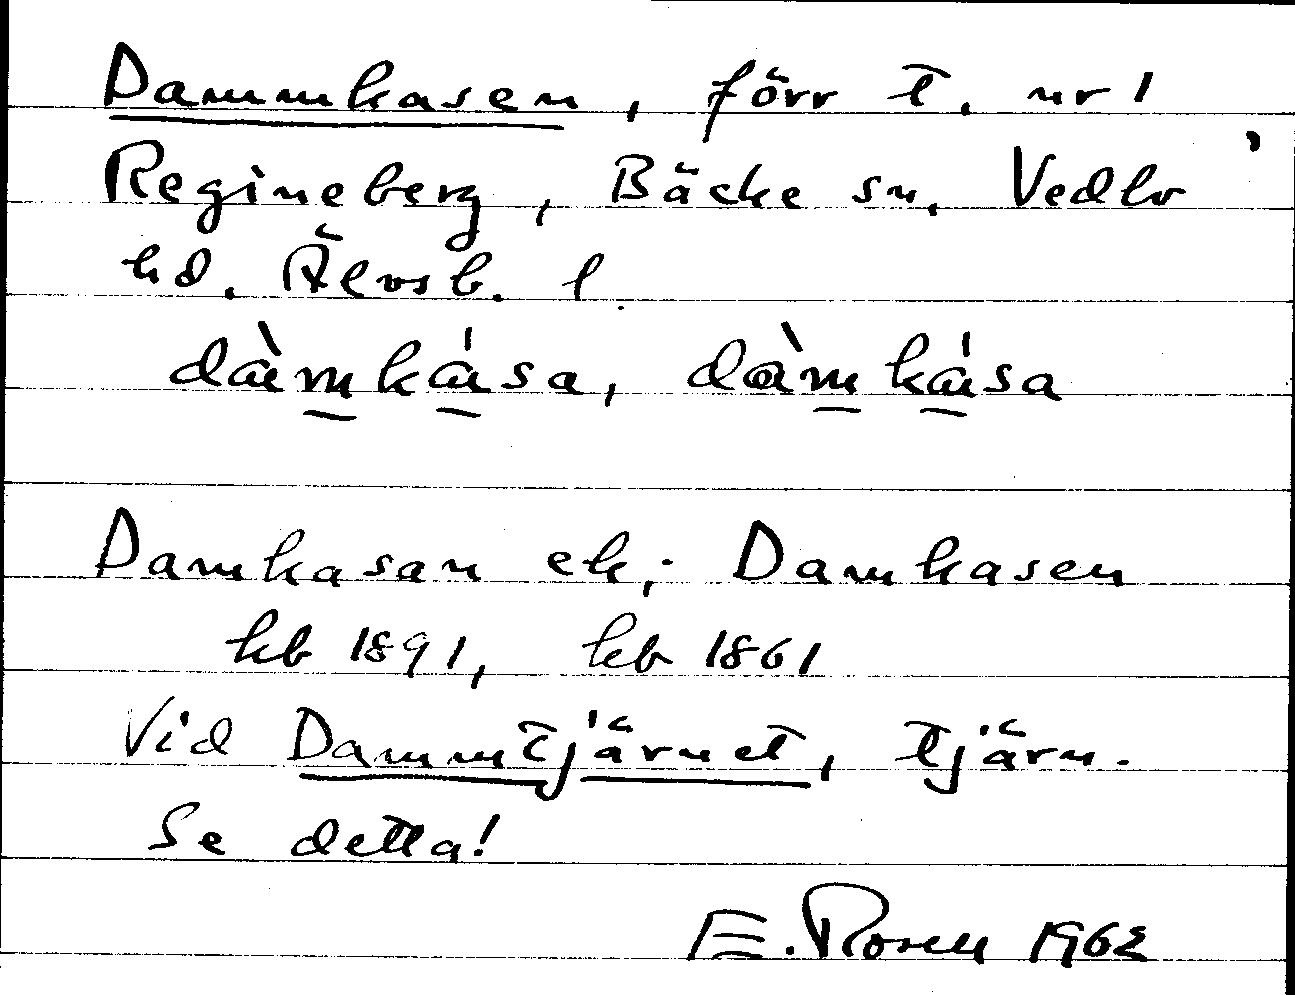 Dammkasen, förr t. nr 1
Regineberg, Bäcke sn, Vedbo
hd. Älvsb. l.
dàmkása, dàmkása
Damkasan ek; Damkasen
kb 1891, kb 1861
Vid Dammtjärnet, tjärn.
Se detta!
E. Rosell 1962